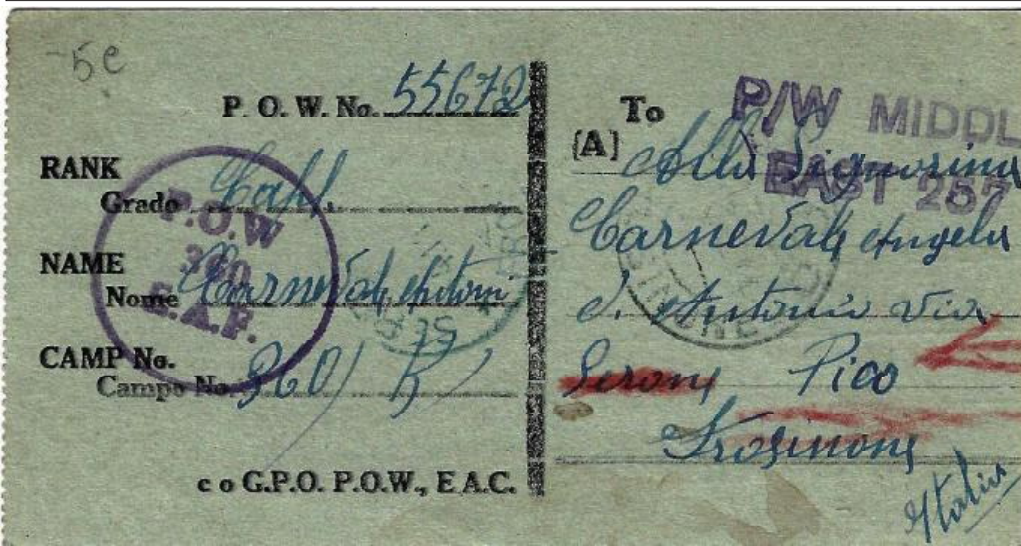 5e
P. O. W. No. 55672
RANK
Grado
P.O.W
360
E.A.F.
NAME
Nome Carnevale Antoni
CAMP No.
Campo No. 360/ B
c o G.P.O. P.O.W., E.A.C.
To
[A]
P/W MIDDL
EAST 257
Alla Signorina
Carnevale Angela
d. Antonio Via
Pico
Frosinone
Italia